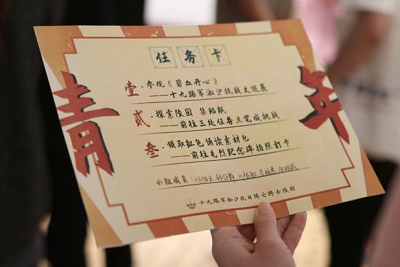 任务卡
青年
壹·参观《碧血丹心》
——十九路军淞沪抗战史迹展
贰·探索陵园 集路版
——前往三处任务点完成挑战
叁·领取红色诵读素材包
——前往先烈纪念碑拍照打卡
小组成员:
十九路军淞沪抗日阵亡将士陵园